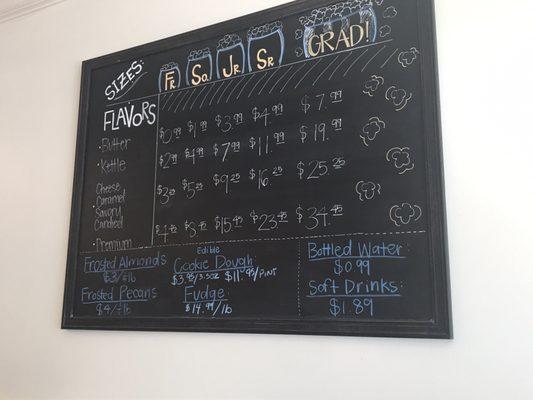 SIZES:
Fr So. Jr Sr GRAD!
FLAVORS
• Butter $0.99 $1.99 $3.99 $4.99 $7.99
• Kettle $2.99 $4.99 $7.99 $11.99 $19.99
Cheese
• Caramel $3.25 $5.25 $9.25 $16.25 $25.25
Savory
Candied
• Premium $8.45 $15.45 $23.45 $34.45
Frosted Almonds
Frosted Pecans
Edible
Cookie Dough:
$3.95/3.5oz $11.95/PINT
Fudge
$14.99/lb
Bottled Water:
$0.99
Soft Drinks:
$1.89